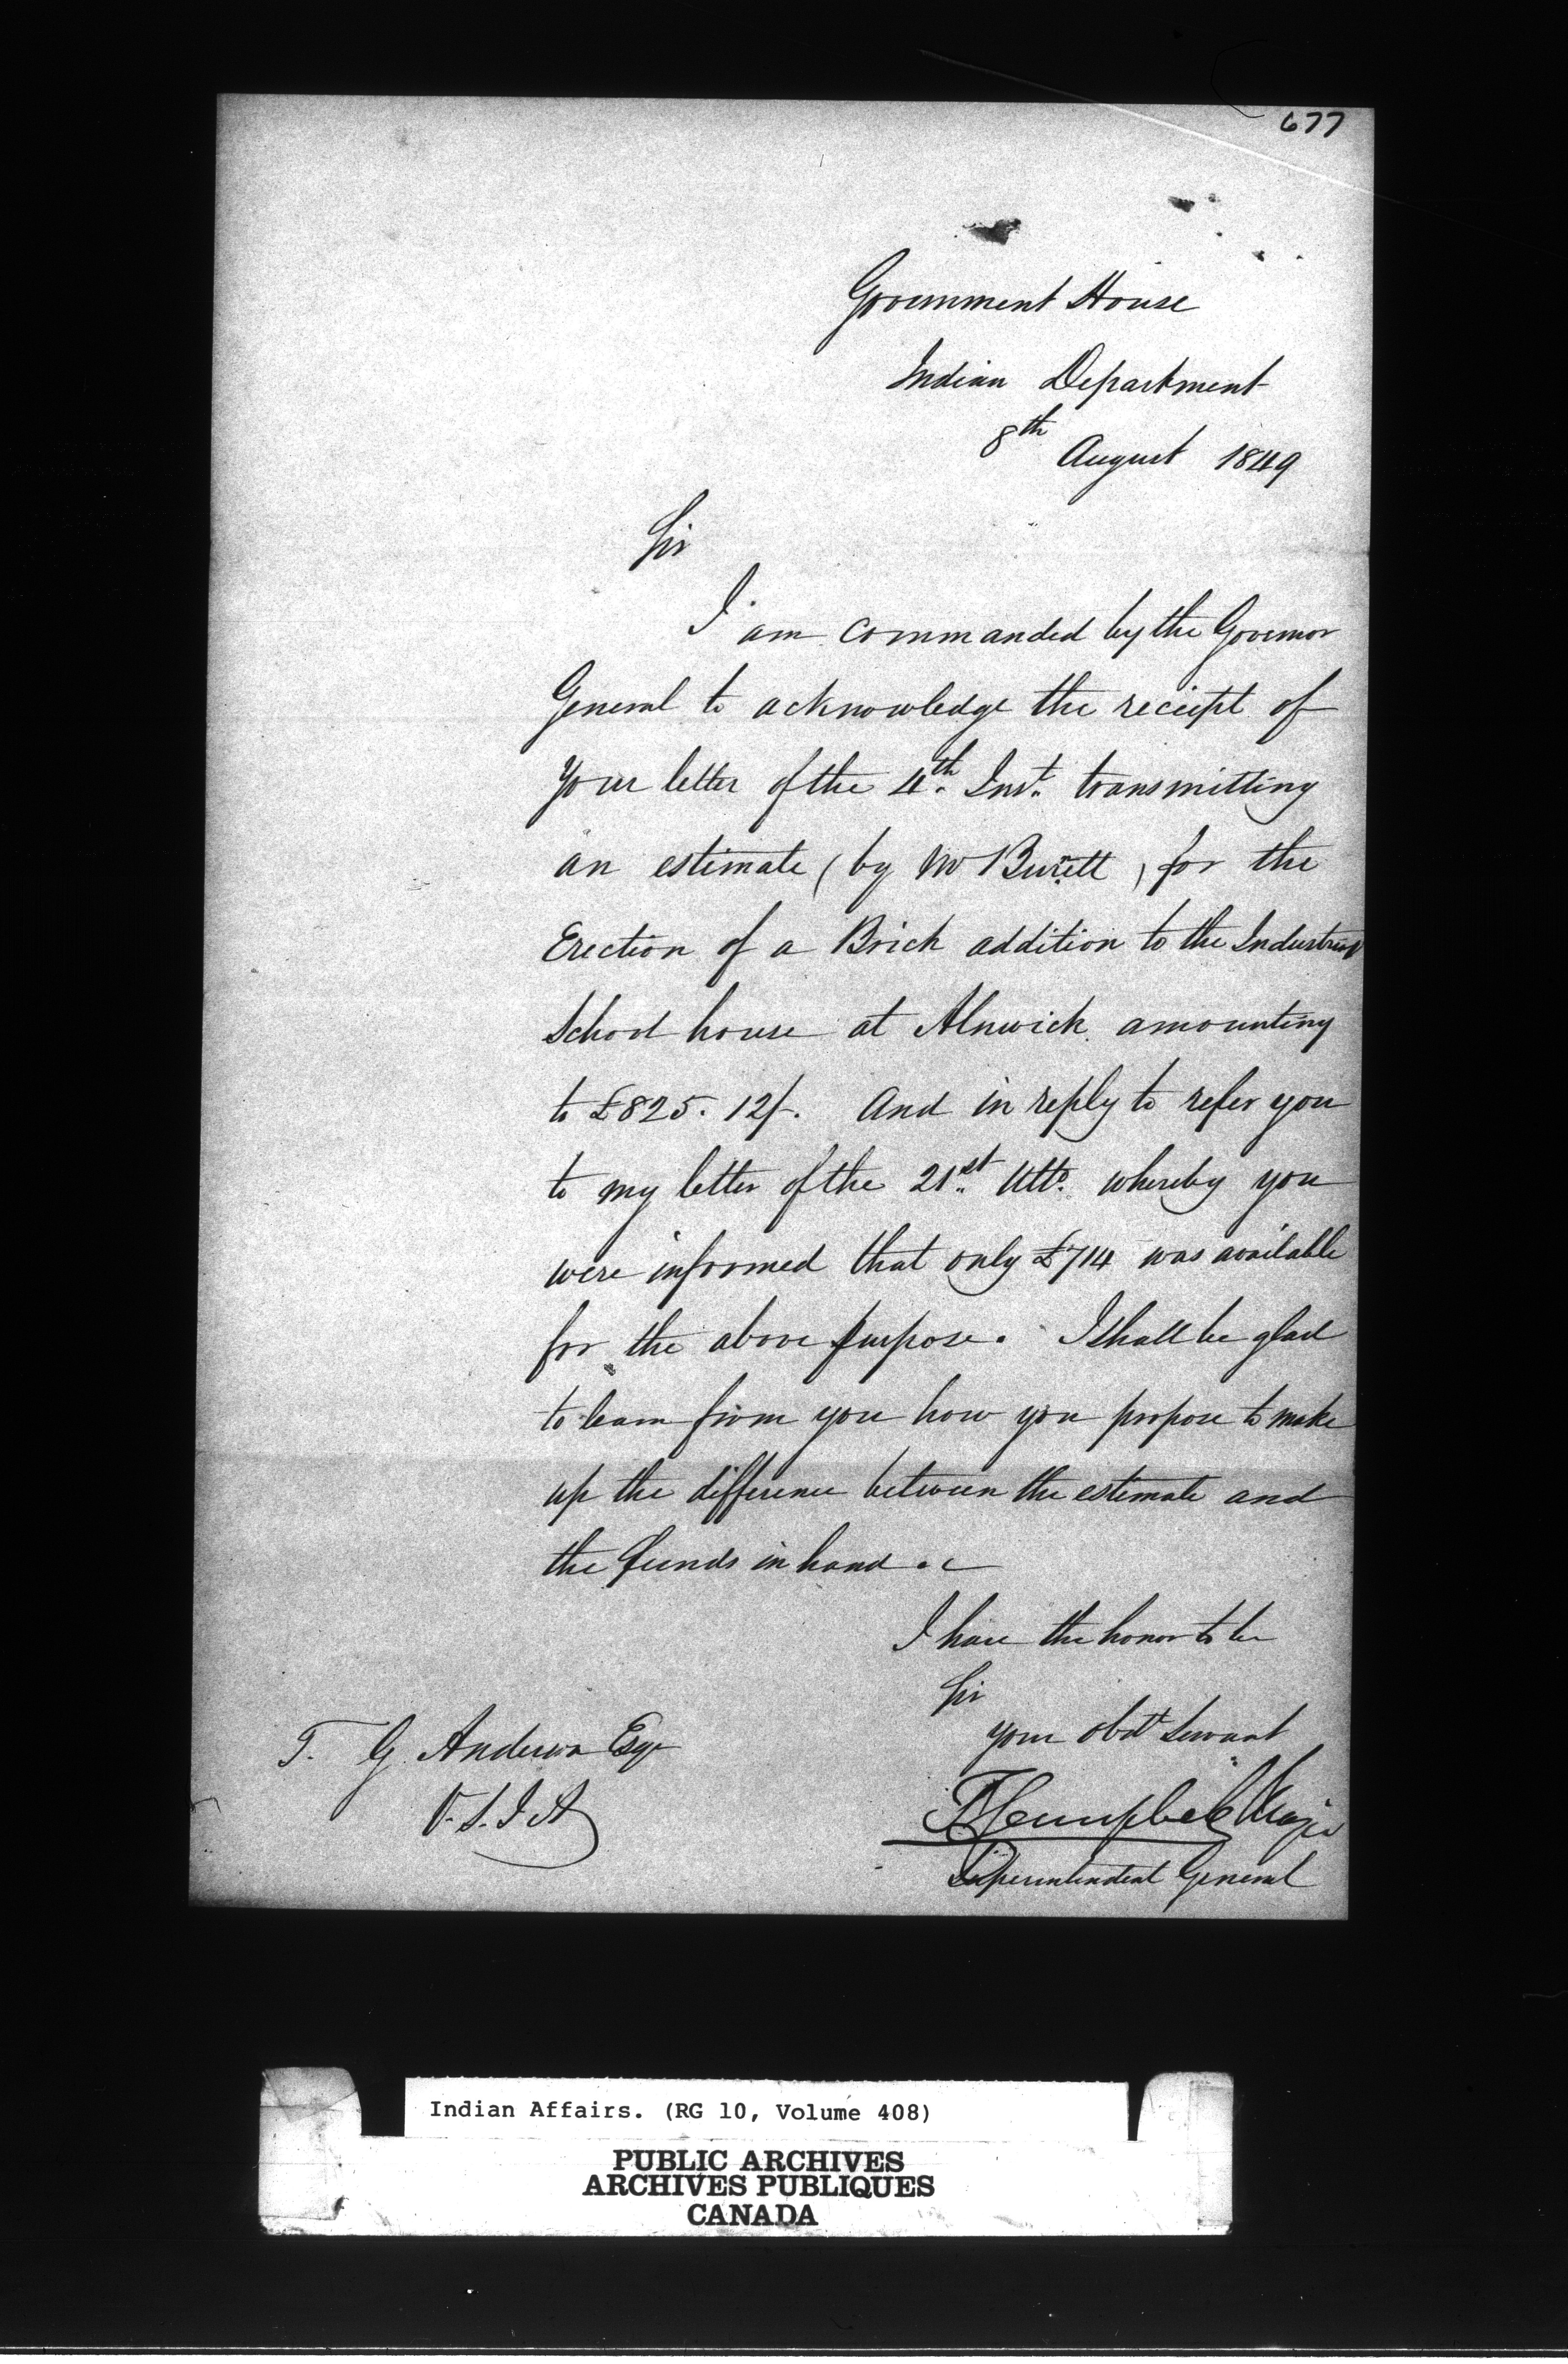 677
Government House
Indian Department
8th August 1849
Sir
I am commanded by the Governor
General to acknowledge the receipt of
Your letter of the 4th Inst. transmitting
an estimate (by Mr Burett) for the
Erection of a Brick addition to the Industrial
School house at Alnwick amounting
to £825. 12/-. And in reply to refer you
to my letter of the 21st Ulto. whereby you
were informed that only £714 was available
for the above purpose. I shall be glad
to learn from you how you propose to make
up the difference between the estimate and
the funds in hand.
I have the honor to be
Sir
your obdt Servant
T. G. Anderson Esqr
V.S.I.A
TCampbell Major
Superintendent General
Indian Affairs. (RG 10, Volume 408)
PUBLIC ARCHIVES
ARCHIVES PUBLIQUES
CANADA